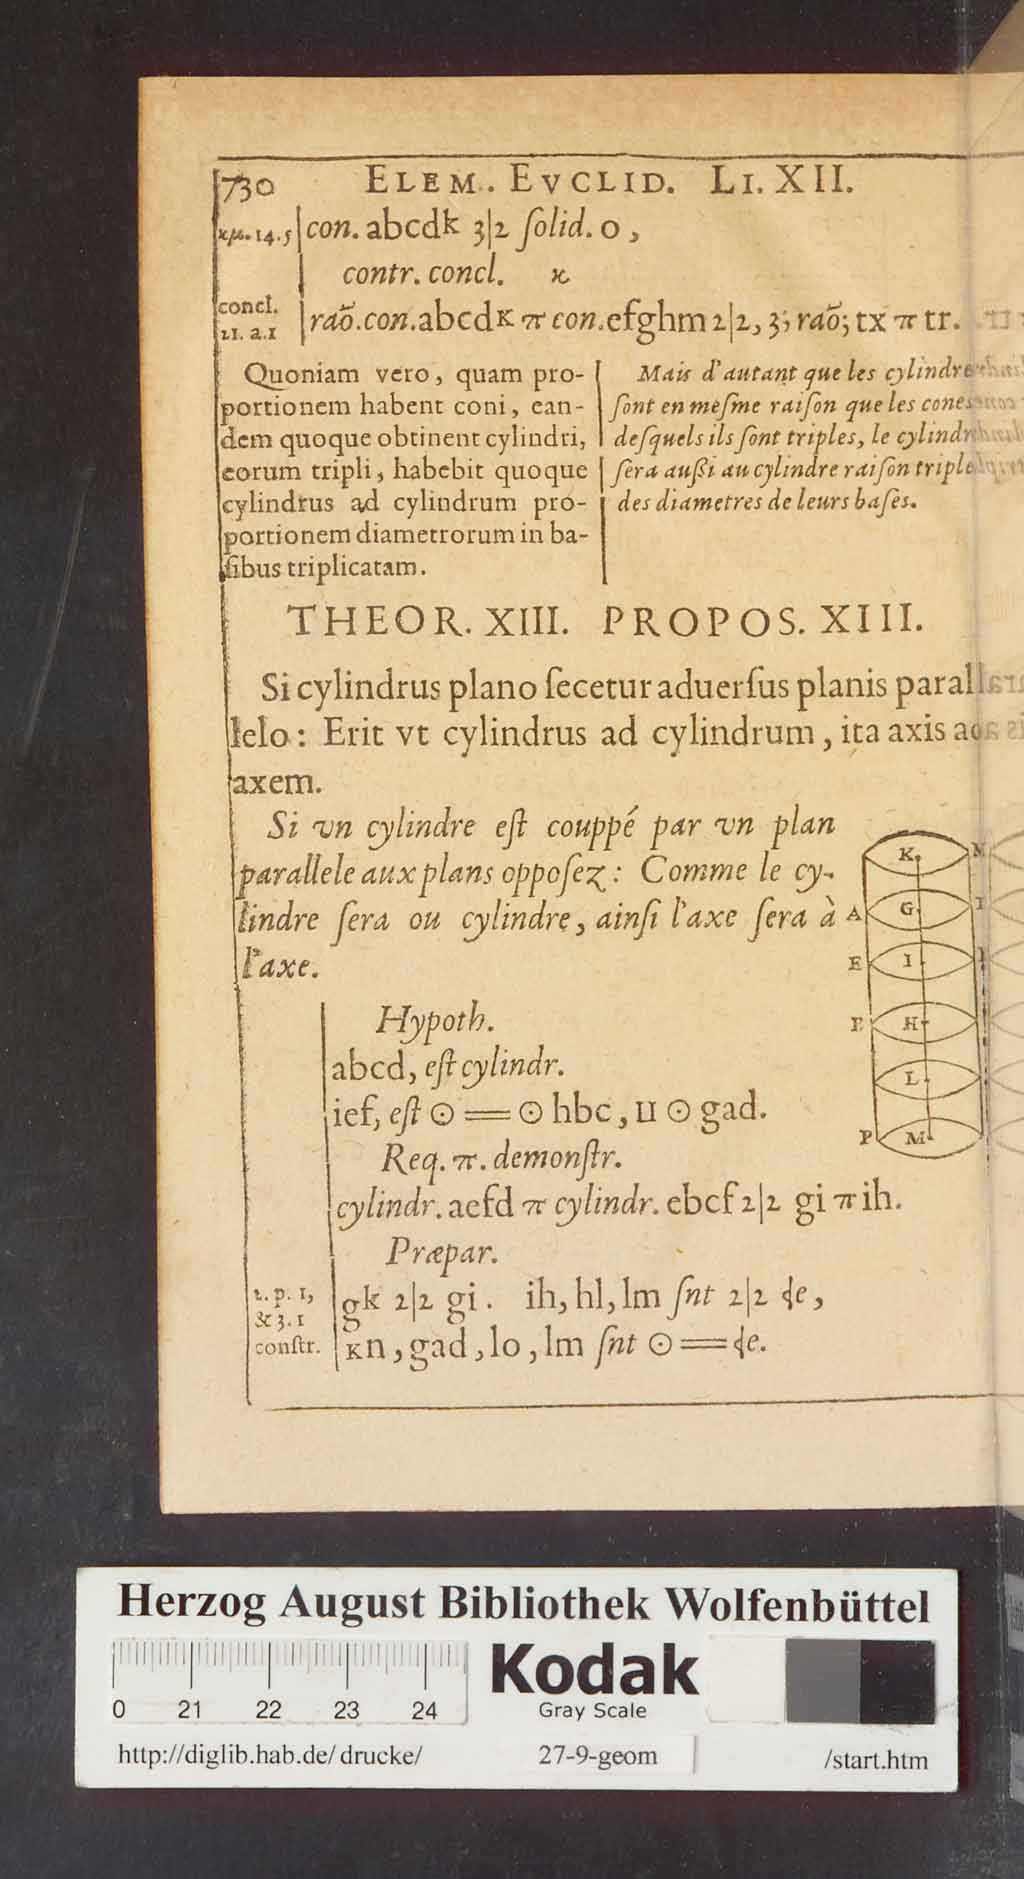 730 ELEM. EVCLID. LI. XII.
14.5 con. abcdk 3|2 ſolid. o,
contr. concl. ϰ
concl. 21. a.1 raõ. con. abcdK π con. efghm 2|2, 3; raõ; tx π tr.
Quoniam vero, quam pro-
portionem habent coni, ean-
dem quoque obtinent cylindri,
eorum tripli, habebit quoque
cylindrus ad cylindrum pro-
portionem diametrorum in ba-
ſibus triplicatam.
Mais d'autant que les cylindre
ſont en meſme raiſon que les cones
deſquels ils ſont triples, le cylindr
ſera auſſi au cylindre raiſon triple
des diametres de leurs baſes.
THEOR. XIII. PROPOS. XIII.
Si cylindrus plano ſecetur aduerſus planis paral
lelo : Erit vt cylindrus ad cylindrum, ita axis ad
axem.
Si vn cylindre eſt couppé par vn plan
parallele aux plans oppoſez : Comme le cy-
lindre ſera ou cylindre, ainſi l'axe ſera à
l'axe.
K N
A G I
E I
F H
L
P M
Hypoth.
abcd, eſt cylindr.
ief, eſt ⊙ == ⊙ hbc, II ⊙ gad.
Req. π. demonſtr.
cylindr. aefd π cylindr. ebcf 2|2 gi π ih.
Præpar.
2. p. 1, gk 2|2 gi. ih, hl, lm ſnt 2|2 ɖe,
& 3. 1
conſtr. Kn, gad, lo, lm ſnt ⊙ == ɖe.
Herzog August Bibliothek Wolfenbüttel
0 21 22 23 24
Kodak
Gray Scale
http://diglib.hab.de/drucke/ 27-9-geom /start.htm